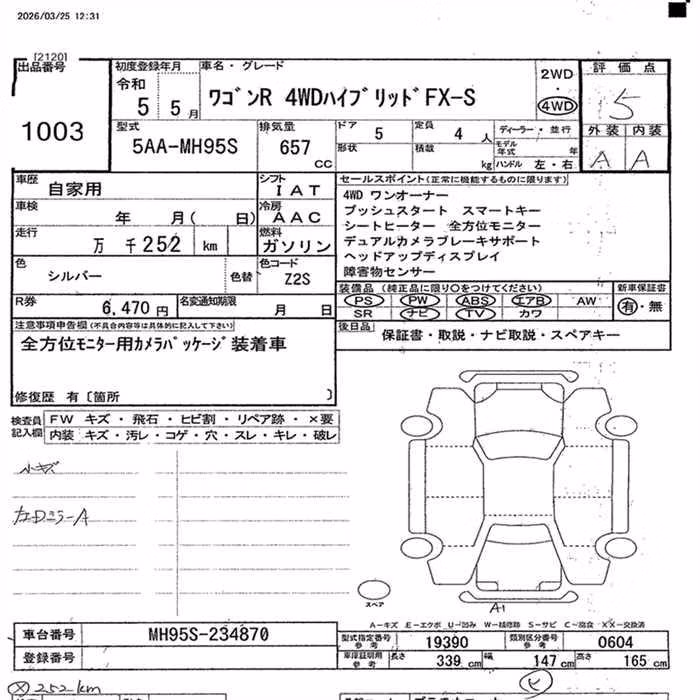 2026/03/25 12:31
[2120]
出品番号
1003
初度登録年月
令和
5 5月
車名・グレード
ワゴンR 4WDハイブリッドFX-S
2WD
・
4WD
評価点
5
外装 内装
A A
型式
5AA-MH95S
排気量
657
CC
ドア
5
定員
4 人
形状
積載
kg
ディーラー・並行
モデル年式 年
ハンドル 左・右
車歴
自家用
シフト
IAT
車検
年 月( 日)
冷房
AAC
走行
万 千252 km
燃料
ガソリン
色
シルバー
色替
色コード
Z2S
R券
6,470円
名変通知期限
月 日
セールスポイント(正常に機能するものに限ります)
4WD ワンオーナー
プッシュスタート スマートキー
シートヒーター 全方位モニター
デュアルカメラブレーキサポート
ヘッドアップディスプレイ
障害物センサー
装備品(純正品に限り○をつけてください)
PS PW ABS エアB AW
SR ナビ TV カワ
新車保証書
有・無
後日品
保証書・取説・ナビ取説・スペアキー
注意事項申告欄(不具合内容等は具体的に記入して下さい)
全方位モニター用カメラパッケージ装着車
修復歴 有〔箇所 〕
検査員
記入欄
FW キズ・飛石・ヒビ割・リペア跡・×要
内装 キズ・汚レ・コゲ・穴・スレ・キレ・破レ
小キズ
スペア
A1
A-キズ E-エクボ U-凹み W-補修跡 S-サビ C-腐食 XX-交換済
車台番号
MH95S-234870
登録番号
型式指定番号
参考
19390
類別区分番号
参考
0604
車庫証明用
参考
長さ 339 cm 幅 147 cm 高さ 165 cm
252km